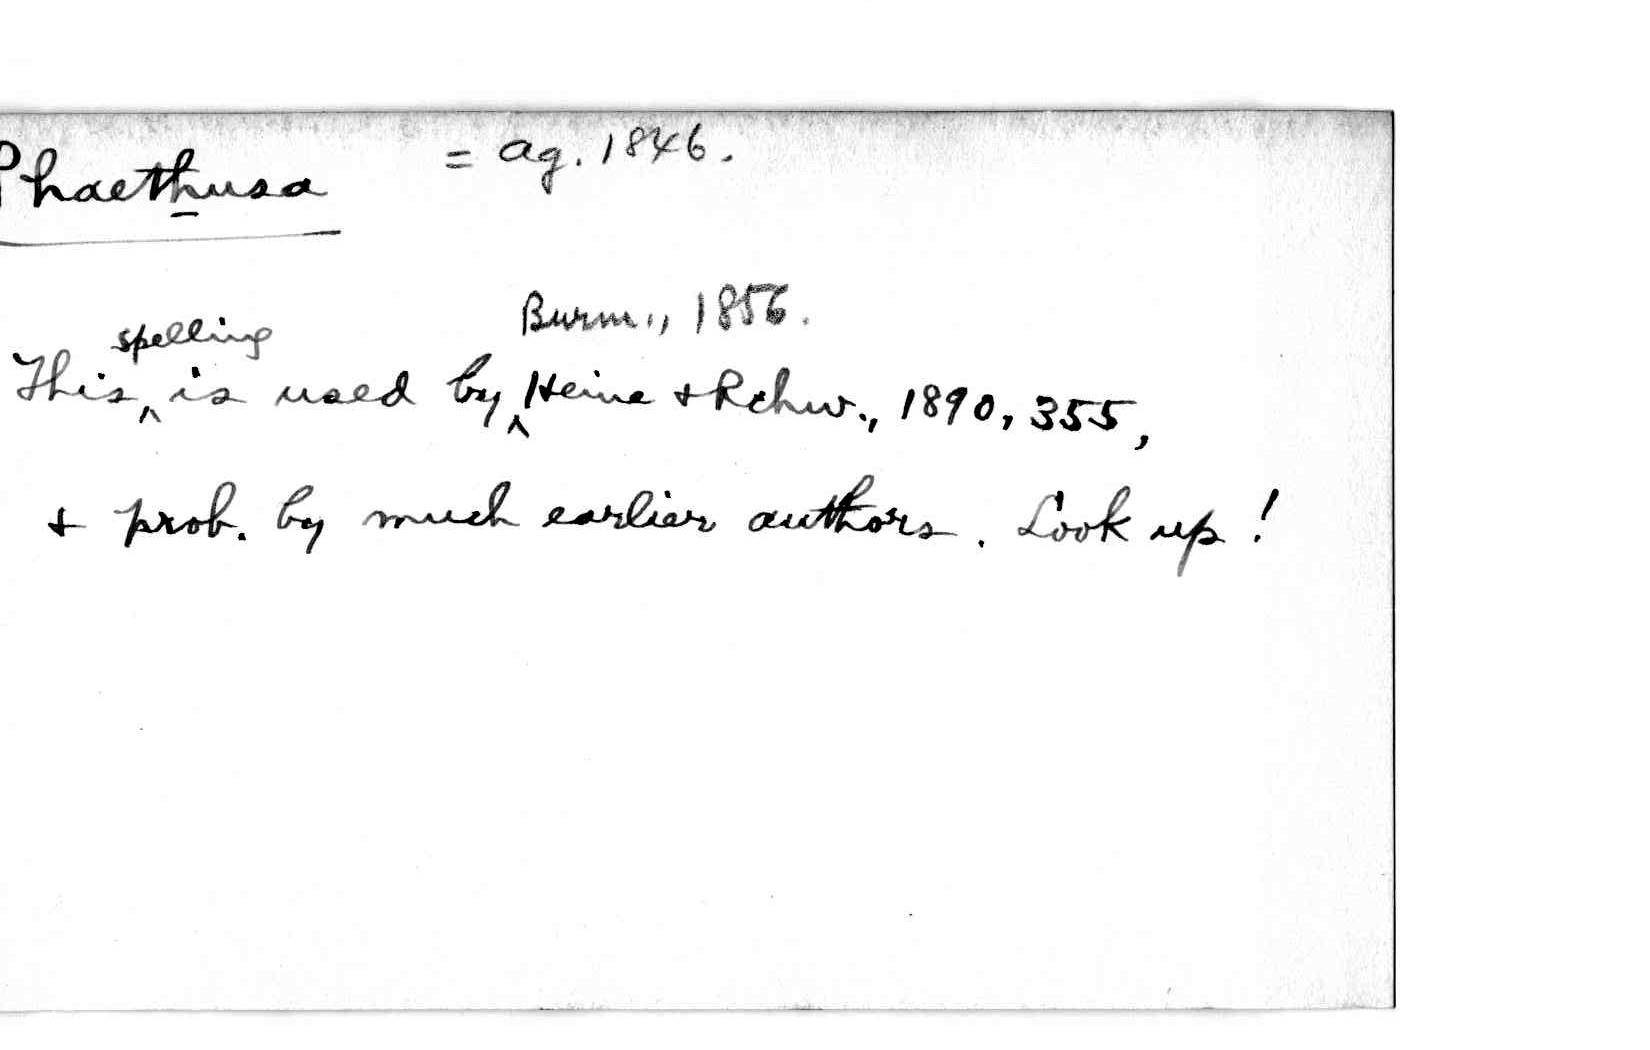 Phaethusa = Ag. 1846.
spelling Burm., 1856.
This ^ is used by ^ Heine & Rchw., 1890, 355,
& prob. by much earlier authors. Look up!